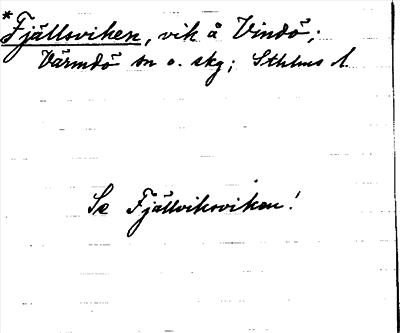 *Fjällsviken, vik å Vindö;
Värmdö sn o. skg; Sthlms l.
Se Fjällviksviken!